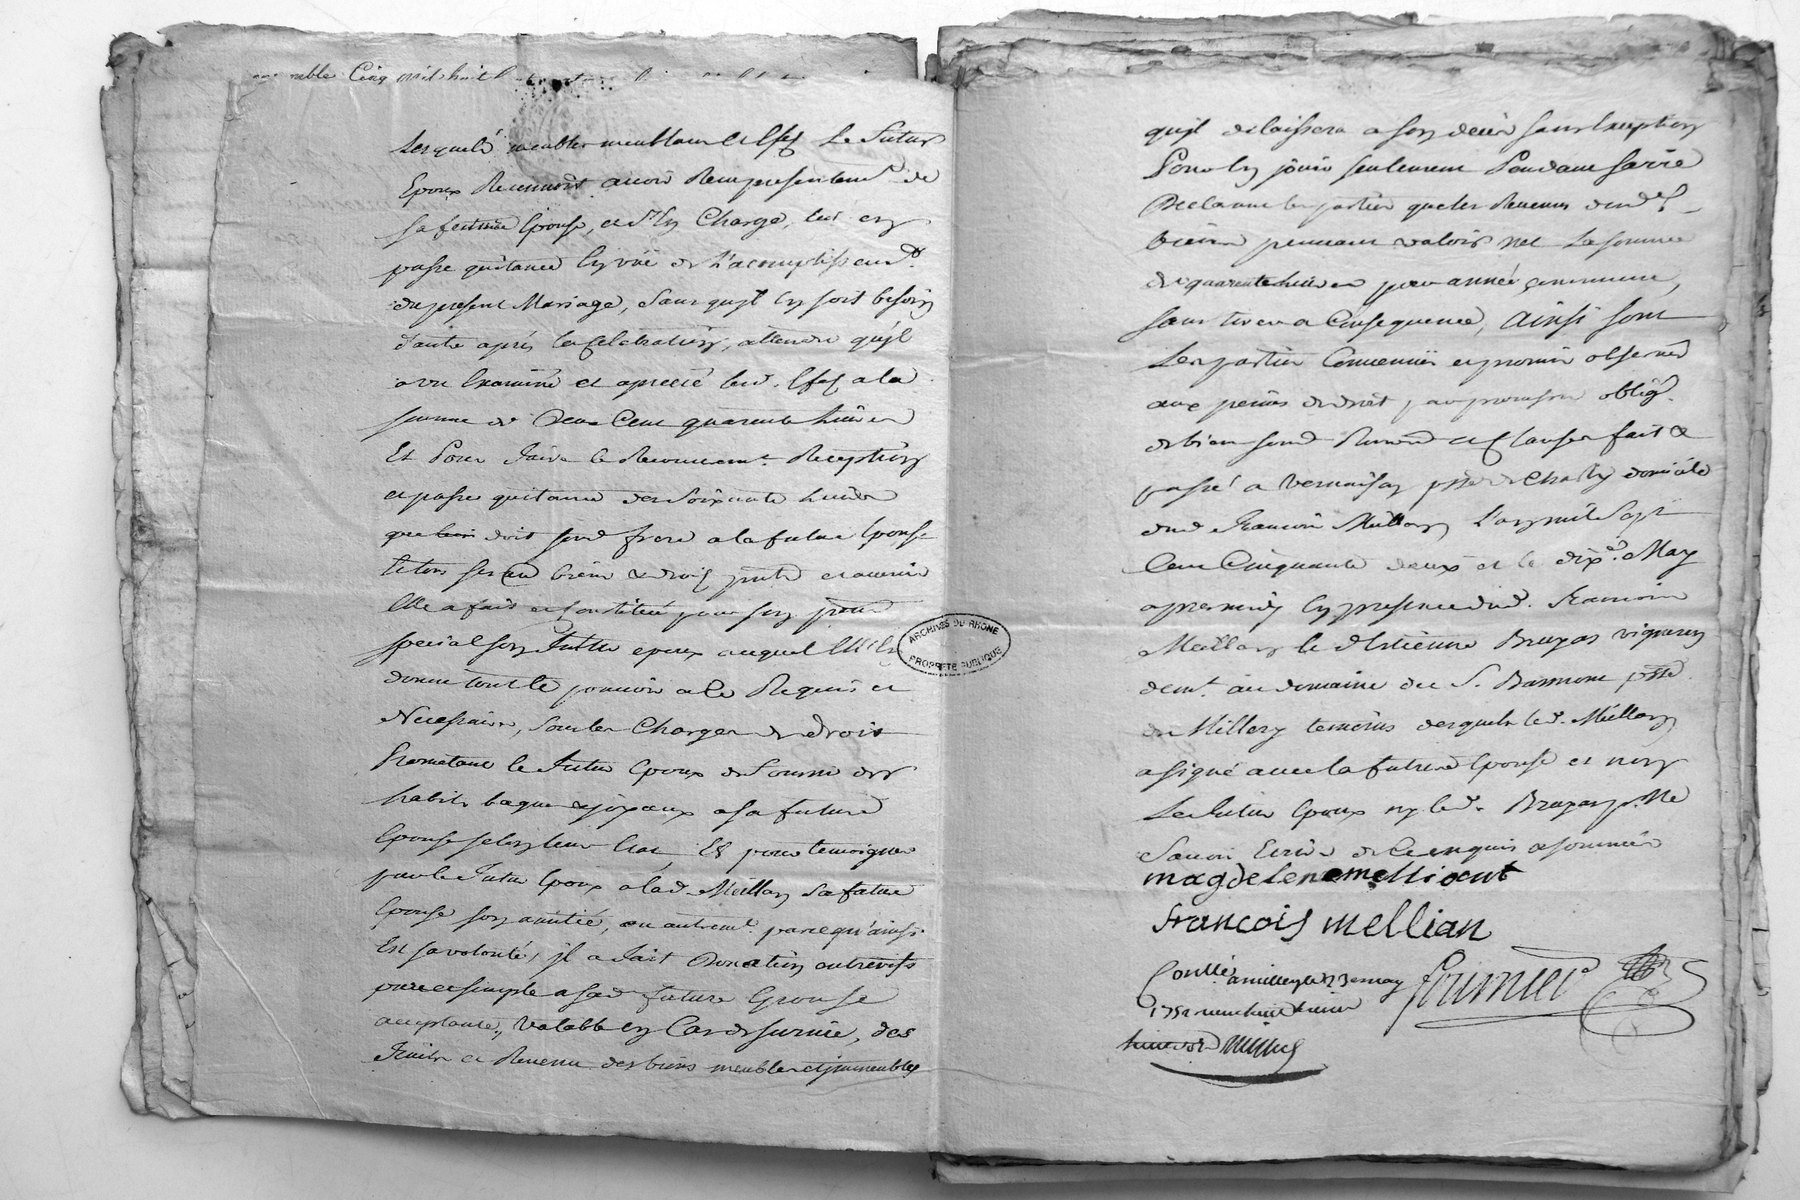 Lesquels meubles meublant et effets Le futur
Epoux Reconnoit avoir Reçu presentemt. de
sa future Epouse, et s'en Charge, luy en
passe quitance en vüe de L'acomplissemt.
du present Mariage, sans qu'il en soit besoin
d'autre après la Celebration, attendu qu'il
a vu Examiné et aprecié lesd. effets a la
somme de deux Cent quarente Livres
Et Pour faire le Recouvremt. Reception
et passer quitance des Soixante Livres
que doit sond frere a la future Epouse
et tous ses biens & droits pnts et avenir
Elle a fait et Constitué pour son procur
special son futur epoux auquel Elle
donne tout le pouvoir a le Requis et
Necessaire, sous les Charges de droit
Prometant le futur Epoux de fournir des
habits bagues & joyaux a sa future
Epouse selon leur Etat Et pour temoigner
par le futur Epoux a lad. Meillan sa future
Epouse son amitié, ou autremt. parce qu'ainsi
Est sa volonté, il a fait Donation entrevifs
pure et simple a sad future Epouse
acceptante, valable en Cas de survie, des
fruits et Revenu des biens meubles et immeubles
qu'il delaissera a son decès sans Exception
Pour En jouir seulement Pendant sa vie
Declarant les parties que les Revenus desd.
biens peuvent valoir net La somme
de quarente livres par année commune,
sans tirer a Consequence, Ainsi sont
Les parties Convenues et promis observer
aux peines de droit, par promesse oblig.
de biens soud Renond et Clauses fait &
passé a Vernaison psse de Charly domicile
dud François Meillan L'an mil Sept
Cent Cinquante deux et le dixe. May
apres midy En presence dud. François
Meillan et d'Estienne Brayas vigneron
demt. au domaine du S. Barmont psse
de Millery temoins desquels led. Meillan
a signé avec la future Epouse et non
Le futur Epoux ny led. Brayas p. ne
Savoir Ecrire de ce enquis et sommés
magdelene mellient
francois mellian
Conllé a millery le 23 may fournier
1752